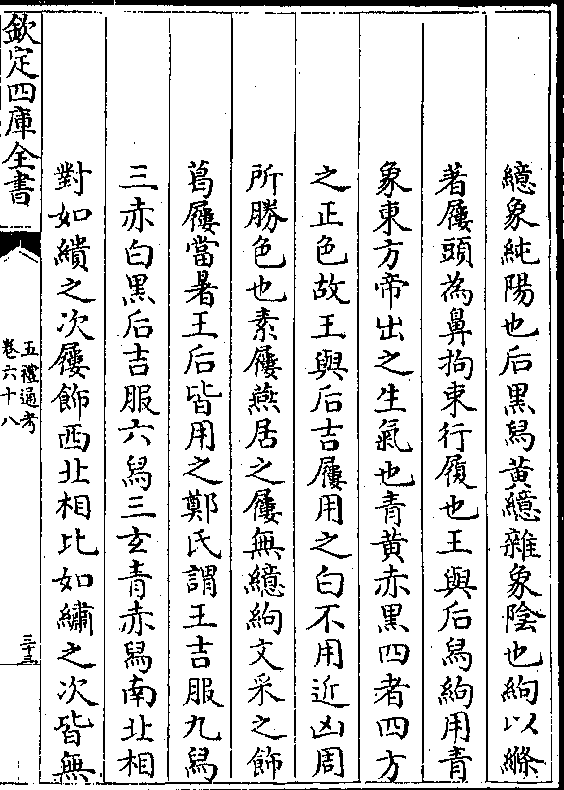 繶象純陽也后黒舄黄繶雜象隂也絇以絛
著屨頭為鼻拘束行履也王與后舄絇用青
象東方帝出之生氣也青黄赤黒四者四方
之正色故王與后吉屨用之白不用近凶周
所勝色也素屨燕居之屨無繶絇文采之飾
葛屨當暑王后皆用之鄭氏謂王吉服九舄
三赤白黒后吉服六舄三玄青赤舄南北相
對如繢之次屨飾西北相比如繡之次皆無
欽定四庫全書
五禮通考
卷六十八
三十三